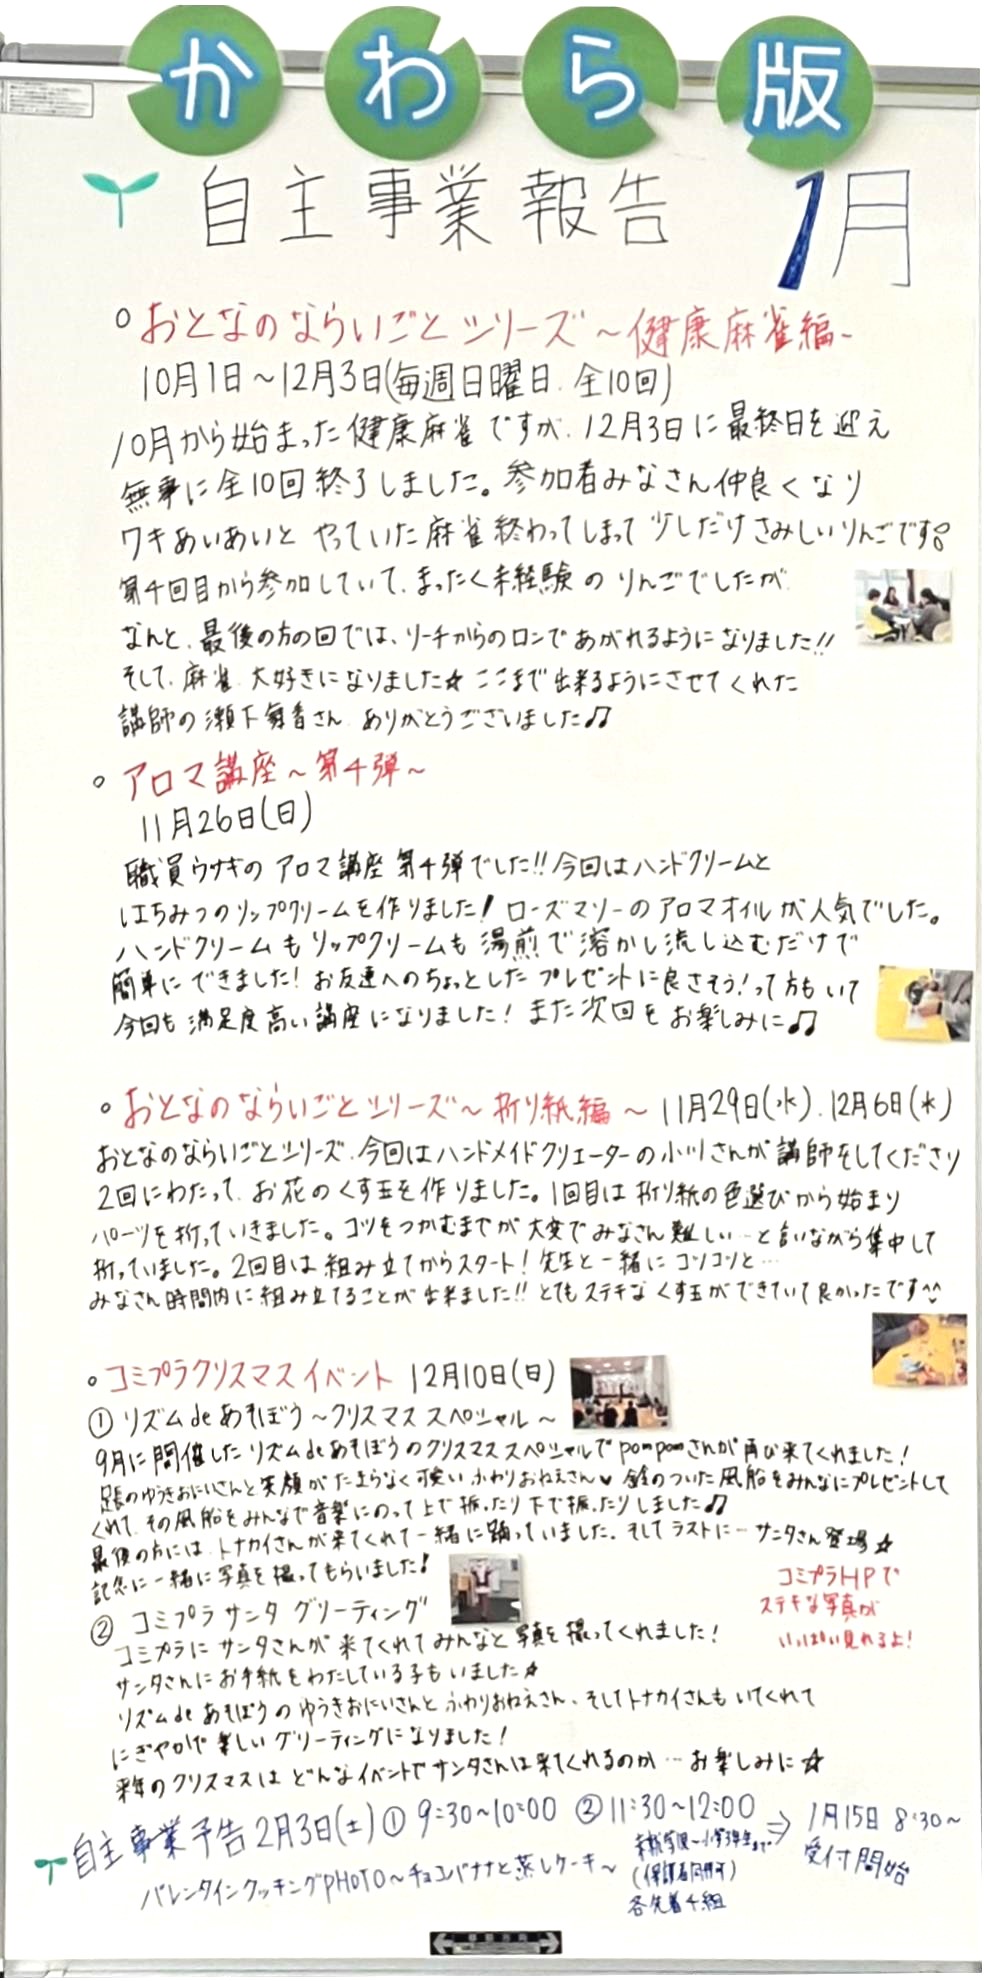 かわら版
自主事業報告 1月
○ おとなのならいごとシリーズ～健康麻雀編～
10月1日～12月3日(毎週日曜日.全10回)
10月から始まった健康麻雀ですが、12月3日に最終日を迎え
無事に全10回終了しました。参加者みなさん仲良くなり
ワキあいあいと やっていた麻雀終わってしまって少しだけさみしいりんごです
第4回目から参加していて、まったく未経験の りんごでしたが、
なんと、最後の方の回では、リーチからのロンであがれるようになりました!!
そして、麻雀 大好きになりました☆ ここまで出来るようにさせてくれた
講師の瀬下舞香さん ありがとうございました♫
○ アロマ講座～第4弾～
11月26日(日)
職員ウサギのアロマ講座第4弾でした!!今回はハンドクリームと
はちみつのリップクリームを作りました! ローズマリーのアロマオイルが人気でした。
ハンドクリームもリップクリームも湯煎で溶かし流し込むだけで
簡単にできました! お友達へのちょっとしたプレゼントに良さそう!って方もいて
今回も満足度高い講座になりました! また次回をお楽しみに♫
○ おとなのならいごとシリーズ～折り紙編～ 11月29日(水).12月6日(水)
おとなのならいごとシリーズ、今回はハンドメイドクリエーターの小川さんが講師をしてくださり
2回にわたって、お花のくす玉を作りました。1回目は折り紙の色選びから始まり
パーツを折っていきました。コツをつかむまでが大変でみなさん難しい…と言いながら集中して
折っていました。2回目は組み立てからスタート! 先生と一緒にコツコツと…
みなさん時間内に組み立てることが出来ました!! とてもステキなくす玉ができていて良かったです^^
○ コミプラクリスマスイベント 12月10日(日)
① リズムdeあそぼう～クリスマススペシャル～
9月に開催したリズムdeあそぼうのクリスマススペシャルでpompomさんが再び来てくれました!
足長のゆうきおにいさんと笑顔がたまらなく可愛いふわりおねえさん♥ 鈴のついた風船をみんなにプレゼントして
くれて、その風船をみんなで音楽にのって上で振ったり下で振ったりしました♫
最後の方には、トナカイさんが来てくれて一緒に踊っていました。そしてラストに…サンタさん登場☆
記念に一緒に写真を撮ってもらいました!
コミプラHPで
ステキな写真が
いっぱい見れるよ!
② コミプラサンタグリーティング
コミプラにサンタさんが来てくれてみんなと写真を撮ってくれました!
サンタさんにお手紙をわたしている子もいました☆
リズムdeあそぼうのゆうきおにいさんとふわりおねえさん、そしてトナカイさんもいてくれて
にぎやかで楽しいグリーティングになりました!
来年のクリスマスはどんなイベントでサンタさんは来てくれるのか…お楽しみに☆
自主事業予告 2月3日(土) ① 9:30～10:00 ② 11:30～12:00 ⇒ 1月15日 8:30～
受付開始
バレンタインクッキングPHOTO～チョコバナナと蒸しケーキ～
未就学児～小学3年生まで
(保護者同伴可)
各先着4組